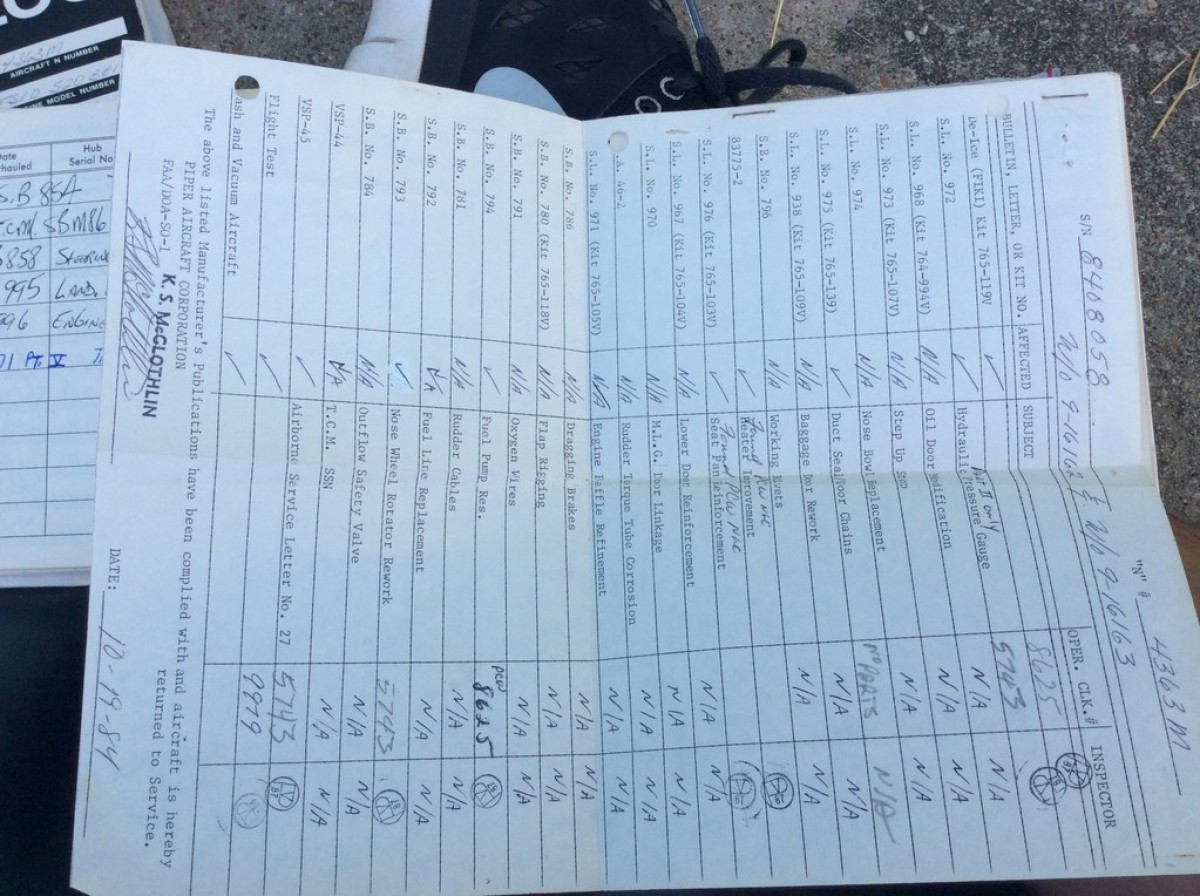 S/N 8408058 "N" # 4363M
W/O 9-16162 & W/O 9-16163
BULLETIN, LETTER, OR KIT NO. AFFECTED SUBJECT OPER. CLK.# INSPECTOR
De-Ice (FIKI) Kit 765-119V ✓ 8625
S.L. No. 972 ✓ Hydraulic Pressure Gauge 5743
S.L. No. 968 (Kit 764-994V) N/A Oil Door Modification N/A N/A
S.L. No. 973 (Kit 765-107V) N/A Step Up Stop N/A N/A
S.L. No. 974 N/A Nose Bowl Replacement N/A N/A
S.L. No. 975 (Kit 765-139) ✓ Duct Seal/Door Chains NO PARTS N/A
S.L. No. 938 (Kit 765-109V) N/A Baggage Door Rework N/A N/A
S.B. No. 796 N/A Working Rivets N/A N/A
83775-2 ✓ Heater Improvement
S.L. No. 976 (Kit 765-103V) ✓ Seat Pan Reinforcement
S.L. No. 967 (Kit 765-104V) N/A Lower Door Reinforcement N/A N/A
S.L. No. 970 N/A M.L.G. Door Linkage N/A N/A
.A. 46-2 N/A Rudder Torque Tube Corrosion N/A N/A
S.L. No. 971 (Kit 765-105V) N/A Engine Baffle Refinement N/A N/A
S.B. No. 786 N/A Dragging Brakes N/A N/A
S.B. No. 780 (Kit 765-118V) N/A Flap Rigging N/A N/A
S.B. No. 791 N/A Oxygen Wires N/A N/A
S.B. No. 794 ✓ Fuel Pump Res. 8625
S.B. No. 781 N/A Rudder Cables N/A N/A
S.B. No. 792 N/A Fuel Line Replacement N/A N/A
S.B. No. 793 ✓ Nose Wheel Rotator Rework 5743
S.B. No. 784 N/A Outflow Safety Valve N/A N/A
VSP-44 N/A T.C.M. SSN N/A N/A
VSP-45 ✓ Airborne Service Letter No. 27 5743
Flight Test ✓ 9979
ash and Vacuum Aircraft ✓
The above listed Manufacturer's Publications have been complied with and aircraft is hereby returned to Service.
PIPER AIRCRAFT CORPORATION
FAA/DOA-SO-1 K. S. McCLOTHLIN
DATE: 10-19-84
AIRCRAFT N NUMBER
NE MODEL NUMBER
Hub
Serial No
S.B 854
SBM86
858
995 LAND.
ENGINE